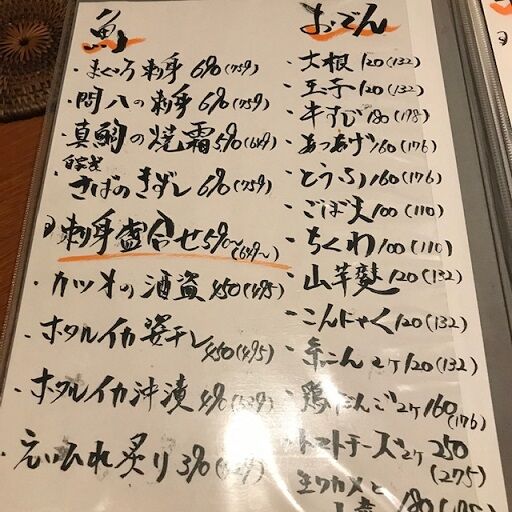 魚
・まぐろ刺身 690(759)
・間八の刺身 690(759)
・真鯛の焼霜 590(649)
自家製
・さばのきずし 690(759)
刺身盛合せ 590〜(649〜)
・カツオの酒盗 450(495)
・ホタルイカ姿干し 450(495)
・ホタルイカ沖漬 490
・えいひれ炙り 390
おでん
・大根 120(132)
・玉子 120(132)
・牛すじ 180
・あつあげ 160(176)
・とうふ 160(176)
・ごぼ天 100(110)
・ちくわ 100(110)
・山芋麩 120(132)
・こんにゃく 120(132)
・糸こん 2ケ 120(132)
・鶏だんご 2ケ 160(176)
・トマトチーズ 2ケ 250(275)
生ワカメと